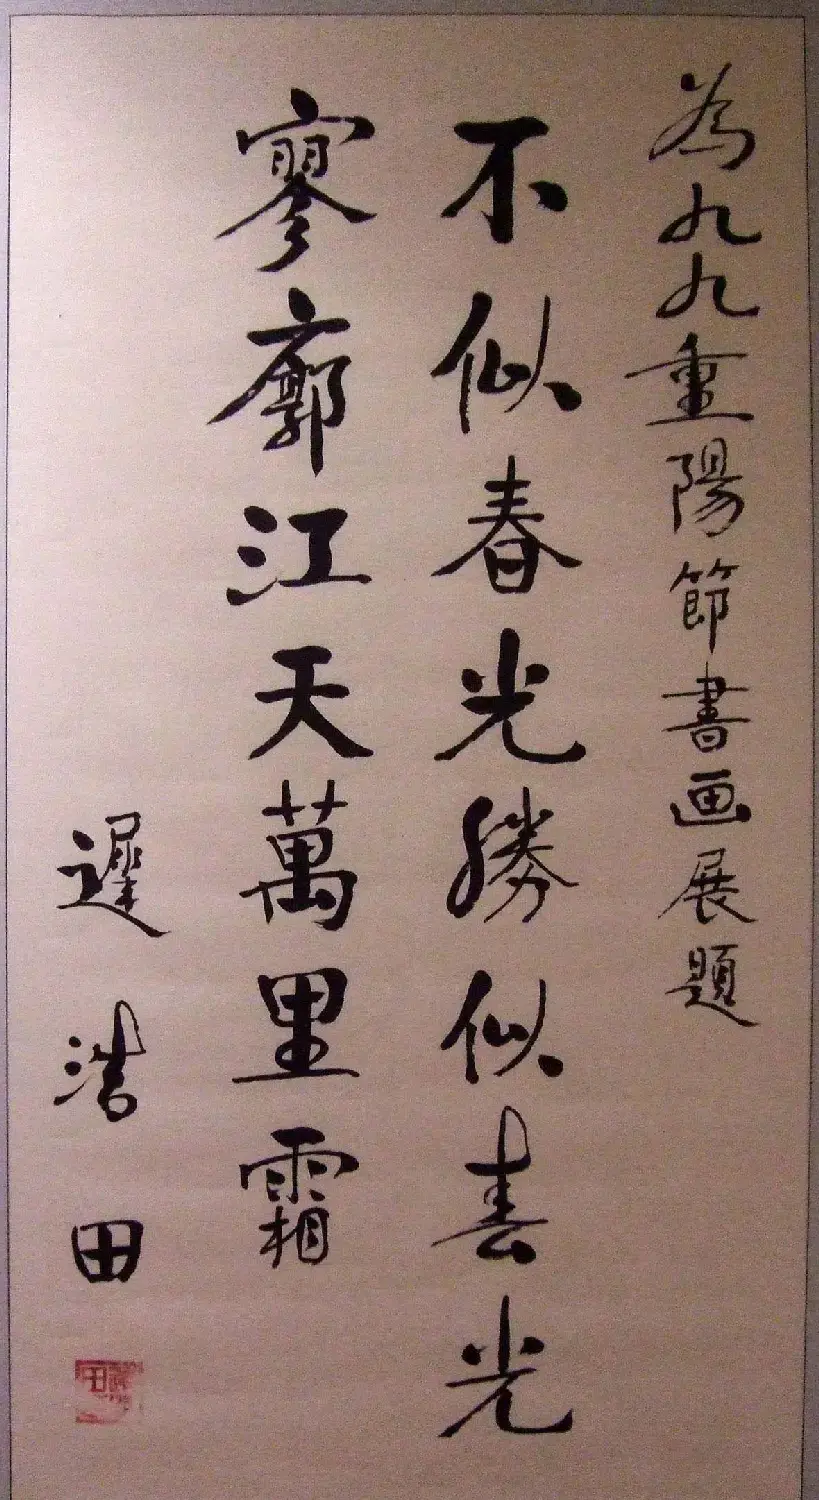 為九九重陽節書画展題
不似春光勝似春光
寥廓江天萬里霜
遲浩田